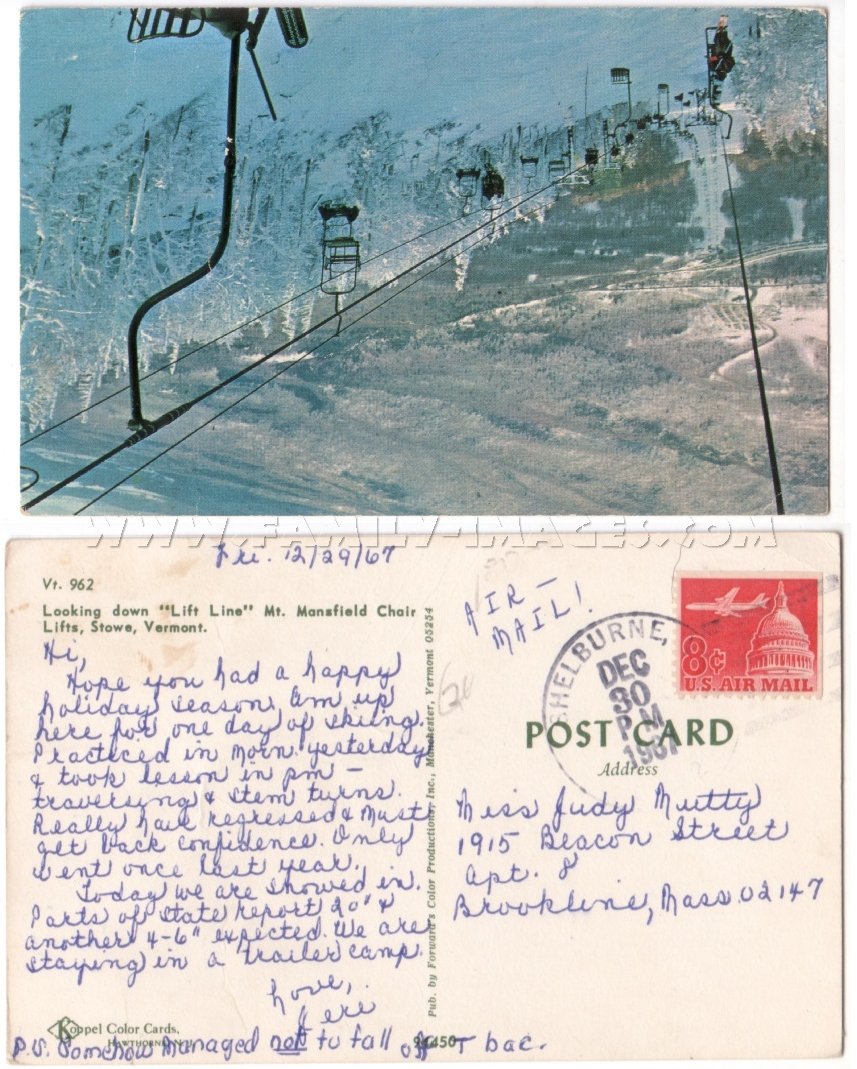 WWW.FAMILY-IMAGES.COM
Fri. 12/29/67
Vt. 962
Looking down "Lift Line" Mt. Mansfield Chair
Lifts, Stowe, Vermont.
Hi,
Hope you had a happy
holiday season. Am up
here for one day of skiing.
Practiced in morn. yesterday
& took lesson in pm –
traversing & stem turns.
Really have regressed & must
get back confidence. Only
went once last year.
Today we are snowed in.
Parts of state report 20" &
another 4-6" expected. We are
staying in a trailer camp.
Love,
Jere
Koppel Color Cards,
HAWTHORNE, N. J.
P.S. Somehow managed not to fall off T bar.
Pub. by Forward's Color Productions, Inc., Manchester, Vermont 05254
94450
AIR –
MAIL!
SHELBURNE,
DEC
30
PM
1967
8¢
U.S. AIR MAIL
POST CARD
Address
Miss Judy Mutty
1915 Beacon Street
Apt. 8
Brookline, Mass. 02147